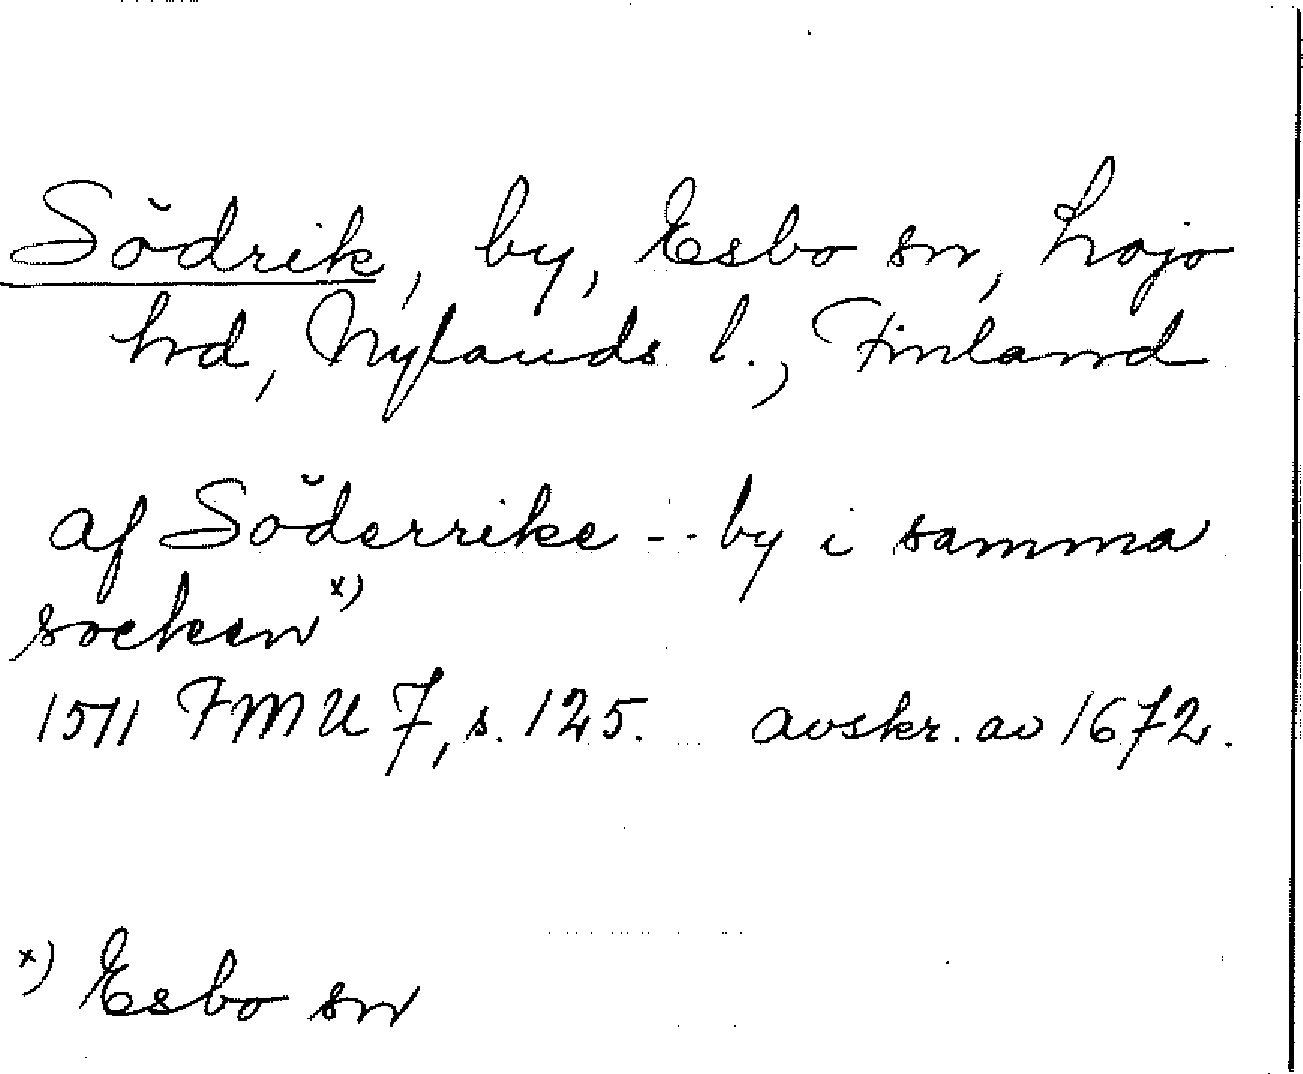 Södrik, by, Esbo sn, Lojo
hrd, Nylands l., Finland
af Söderrike -- by i samma
socken x)
1511 FMU 7, s. 125. avskr. av 1672.
x) Esbo sn